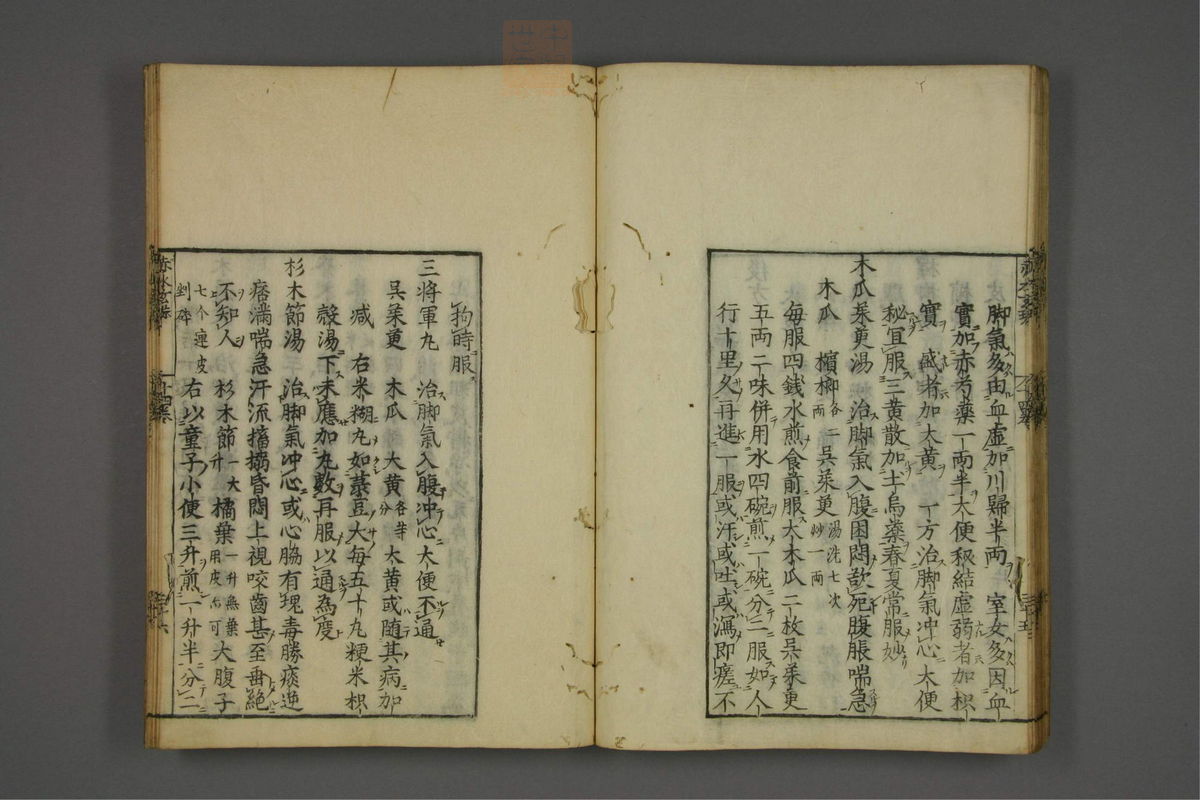 脚氣多由血虛加川歸半両　室女多因血
實加赤芍藥一両半大便秘結虛弱者加枳
實　盛者加大黄　一方治脚氣冲心大便
秘宜服三黄散加土烏藥春夏常服妙
木瓜茱萸湯　治脚氣入腹困悶欲死腹脹喘急
木瓜　檳榔各二両　吳茱萸湯洗七次炒一両
每服四錢水煎食前服大木瓜二枚吳茱萸
五両二味併用水四碗煎一碗分二服如人
行十里久再進一服或汗或吐或瀉即瘥不
拘時服
三將軍丸　治脚氣入腹冲心大便不通
吳茱萸　木瓜　大黄各等分　大黄或隨其病加
减　右米糊丸如菉豆大每五十丸粳米枳
殼湯下未應加丸數再服以通為度
杉木節湯　治脚氣冲心或心脇有塊毒勝痰逆
痞滿喘急汗流搐搦昏悶上視咬齒甚至垂絕
不知人　杉木節一大升　橘葉一升無葉用皮亦可　大腹子
七个連皮剉碎　右以童子小便三升煎一升半分二